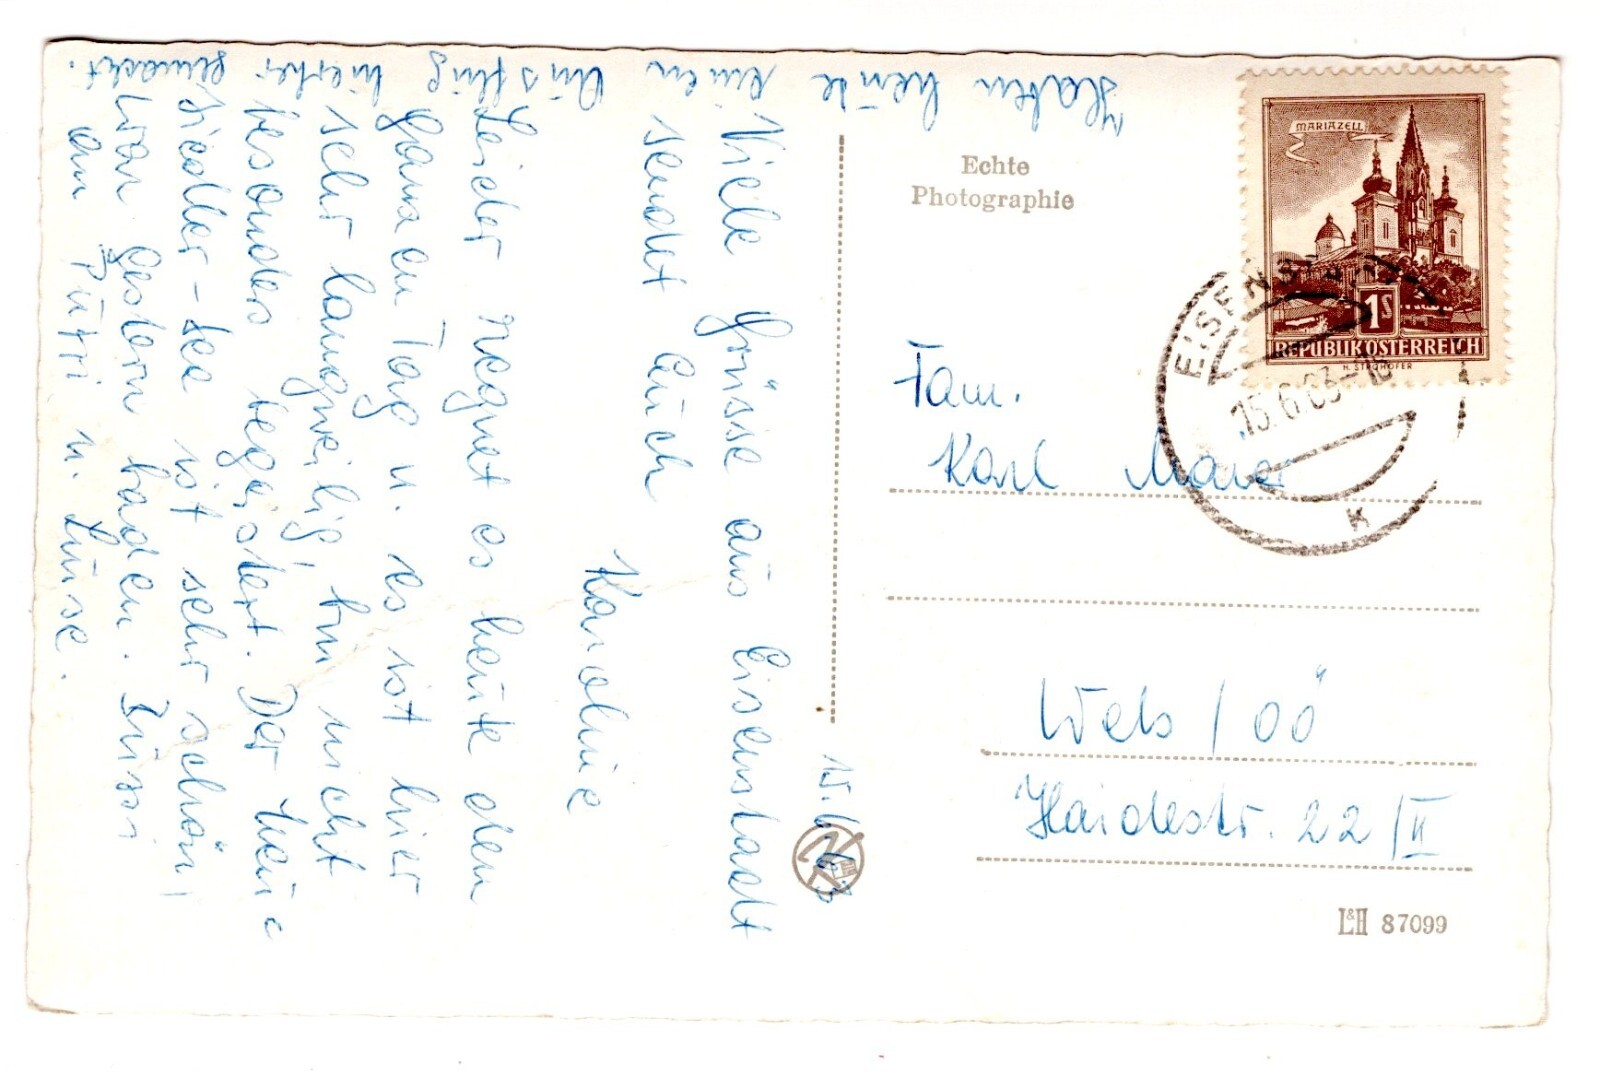 15.6.63
Viele Grüsse aus Eisenstadt
sendet Euch
Karoline
Leider regnet es heute den
ganzen Tag u. es ist hier
sehr langweilig, bin nicht
besonders begeistert. Der Neu
siedler-See ist sehr schön,
war gestern baden. Bussi
an Putzi u. Luise.
Haben heute einen Ausflug hierher gemacht.
Echte
Photographie
MARIAZELL
1S
REPUBLIK ÖSTERREICH
H. STROHOFER
EISENSTADT
15.6.63-18
K
Fam.
Karl
Wels / OÖ
Haidestr. 22/II
L&H 87099